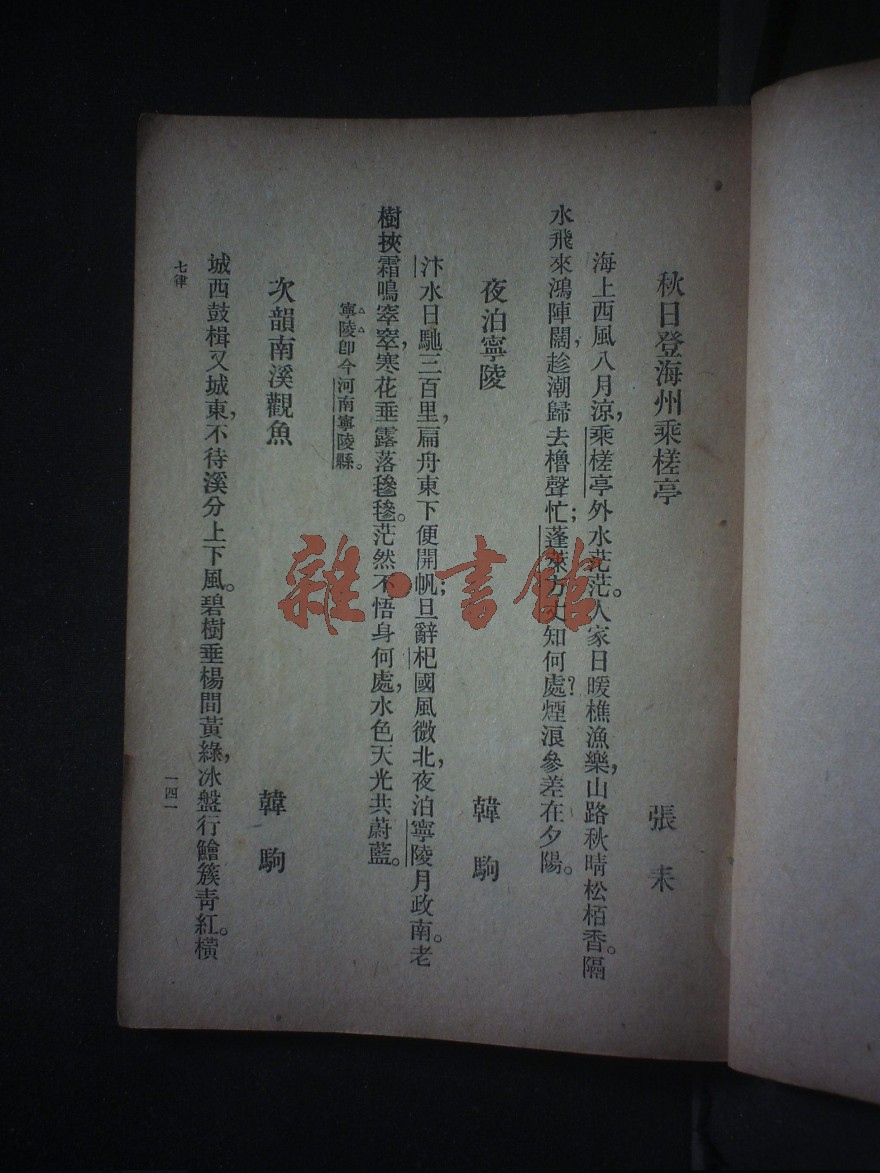 秋日登海州乘槎亭
張耒
海上西風八月涼，乘槎亭外水茫茫。人家日暖樵漁樂，山路秋晴松栢香。隔
水飛來鴻陣闊，趁潮歸去櫓聲忙；蓬萊方丈知何處？煙浪參差在夕陽。
夜泊寧陵
韓駒
汴水日馳三百里，扁舟東下便開帆；旦辭杞國風微北，夜泊寧陵月政南。老
樹挾霜鳴窣窣，寒花垂露落毿毿。茫然不悟身何處，水色天光共蔚藍。
寧陵卽今河南寧陵縣。
次韻南溪觀魚
韓駒
城西鼓楫又城東，不待溪分上下風。碧樹垂楊間黃綠，冰盤行鱠簇靑紅。橫
七律
一四一
雜·書館